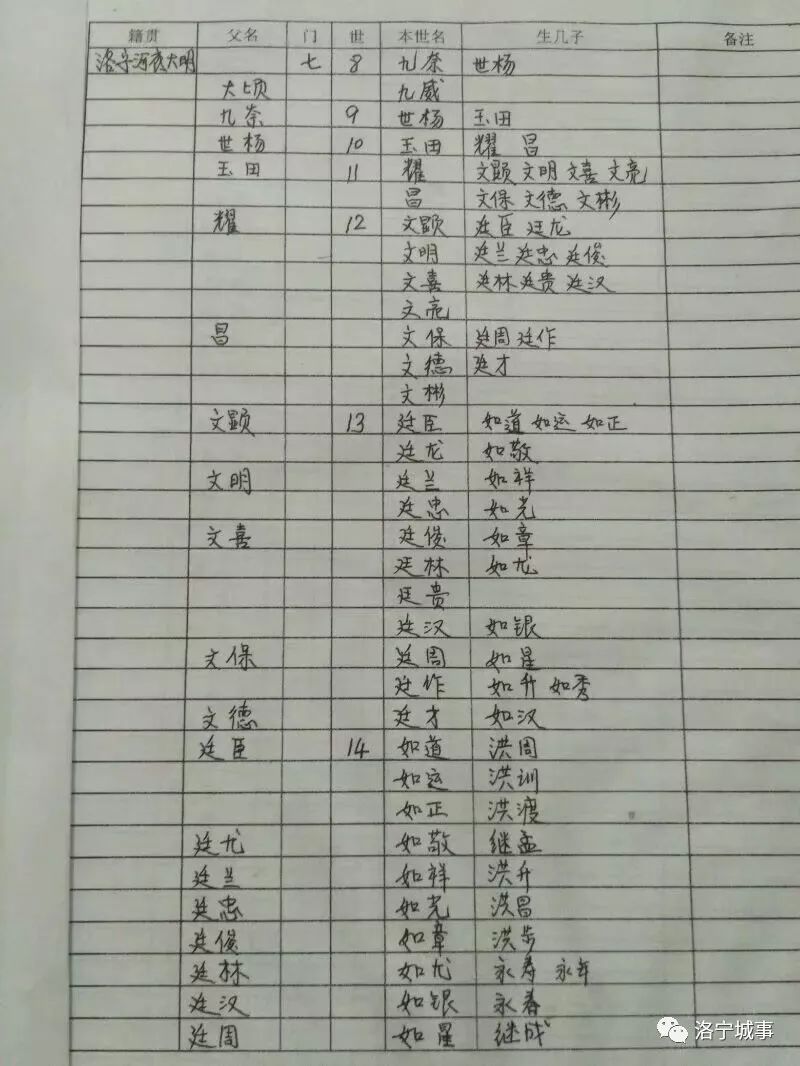 籍贯 父名 门 世 本世名 生几子 备注
洛宁河底大明 七 8 九奈 世杨
大顷 九威
九奈 9 世杨 玉田
世杨 10 玉田 耀 昌
玉田 11 耀 文顕 文明 文喜 文亮
昌 文保 文德 文彬
耀 12 文顕 廷臣 廷龙
文明 廷兰 廷忠 廷俊
文喜 廷林 廷贵 廷汉
文亮
昌 文保 廷周 廷作
文德 廷才
文彬
文顕 13 廷臣 如道 如运 如正
廷龙 如敬
文明 廷兰 如祥
廷忠 如光
文喜 廷俊 如章
廷林 如龙
廷贵
廷汉 如银
文保 廷周 如星
廷作 如升 如秀
文德 廷才 如汉
廷臣 14 如道 洪周
如运 洪训
如正 洪渡
廷龙 如敬 继孟
廷兰 如祥 洪升
廷忠 如光 洪昌
廷俊 如章 洪步
廷林 如龙 永寿 永年
廷汉 如银 永春
廷周 如星 继成
洛宁城事